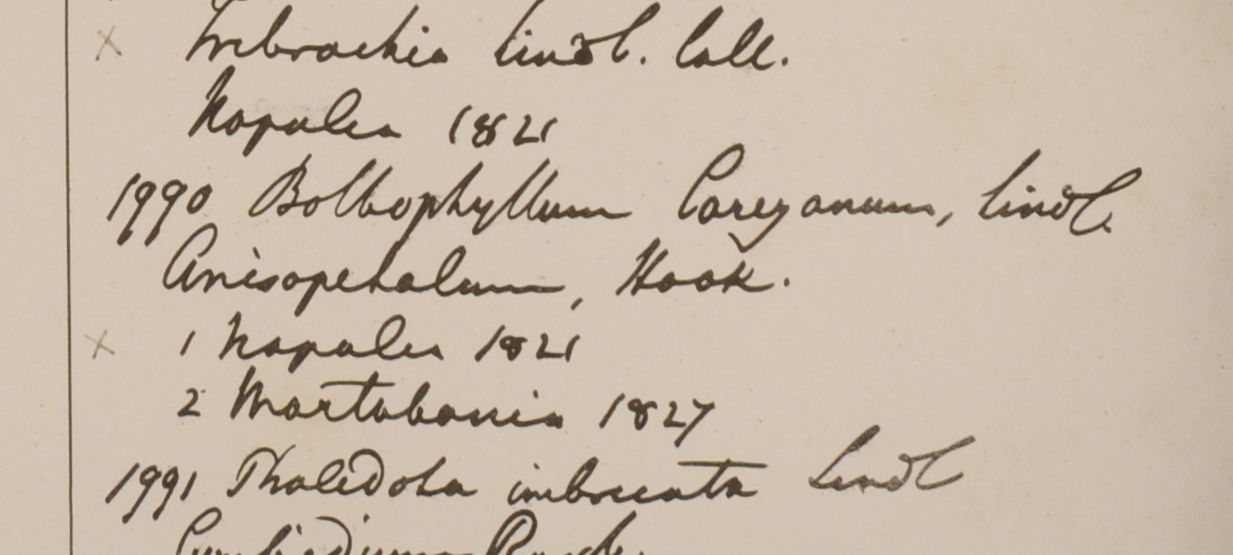 x Tribrachia Lindl. Coll.
Napalia 1821
1990 Bolbophyllum Careyanum, Lindl.
Anisopetalum, Hook.
x 1 Napalia 1821
2 Martabania 1827
1991 Pholidota imbricata Lindl
Cymbidium Roxb.